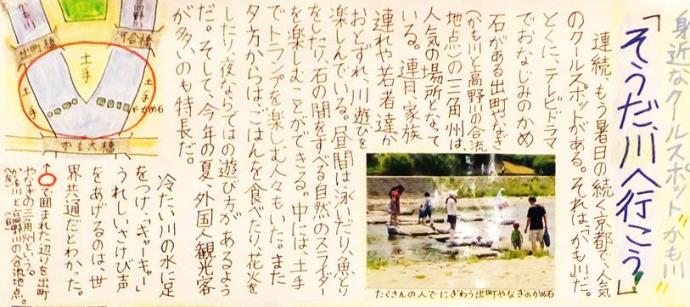 身近なクールスポット"かも川"
「そうだ、川へ行こう」
連続、もう暑日の続く京都で、人気
のクールスポットがある。それは、「かも川」だ。
とくに、テレビドラマ
でおなじみのかめ
石がある出町やなぎ
(かも川と高野川の合流
地点)の三角州は、
人気の場所となって
いる。連日、家族
連れや若者達が
おとずれ、川遊びを
楽しんでいる。昼間は泳いだり、魚とり
をしたり、石の間をすべる自然のスライダー
を楽しむことができる。中には、土手
でトランプを楽しむ人々もいた。また
夕方からは、ごはんを食べたり、花火を
したり、夜ならではの遊び方があるよう
だ。そして、今年の夏、外国人観光客
が多いのも特長だ。
冷たい川の水に足
をつけ、「キャーキャー」
うれしいさけび声
をあげるのは、世
界共通だとわかった。
たくさんの人でにぎわう出町やなぎのかめ石
出町橋
河合橋
土手
土手
土手
かめ石
かも大橋
で囲まれた辺りを出町
やなぎの三角州という。
かも川と高野川の合流地点。